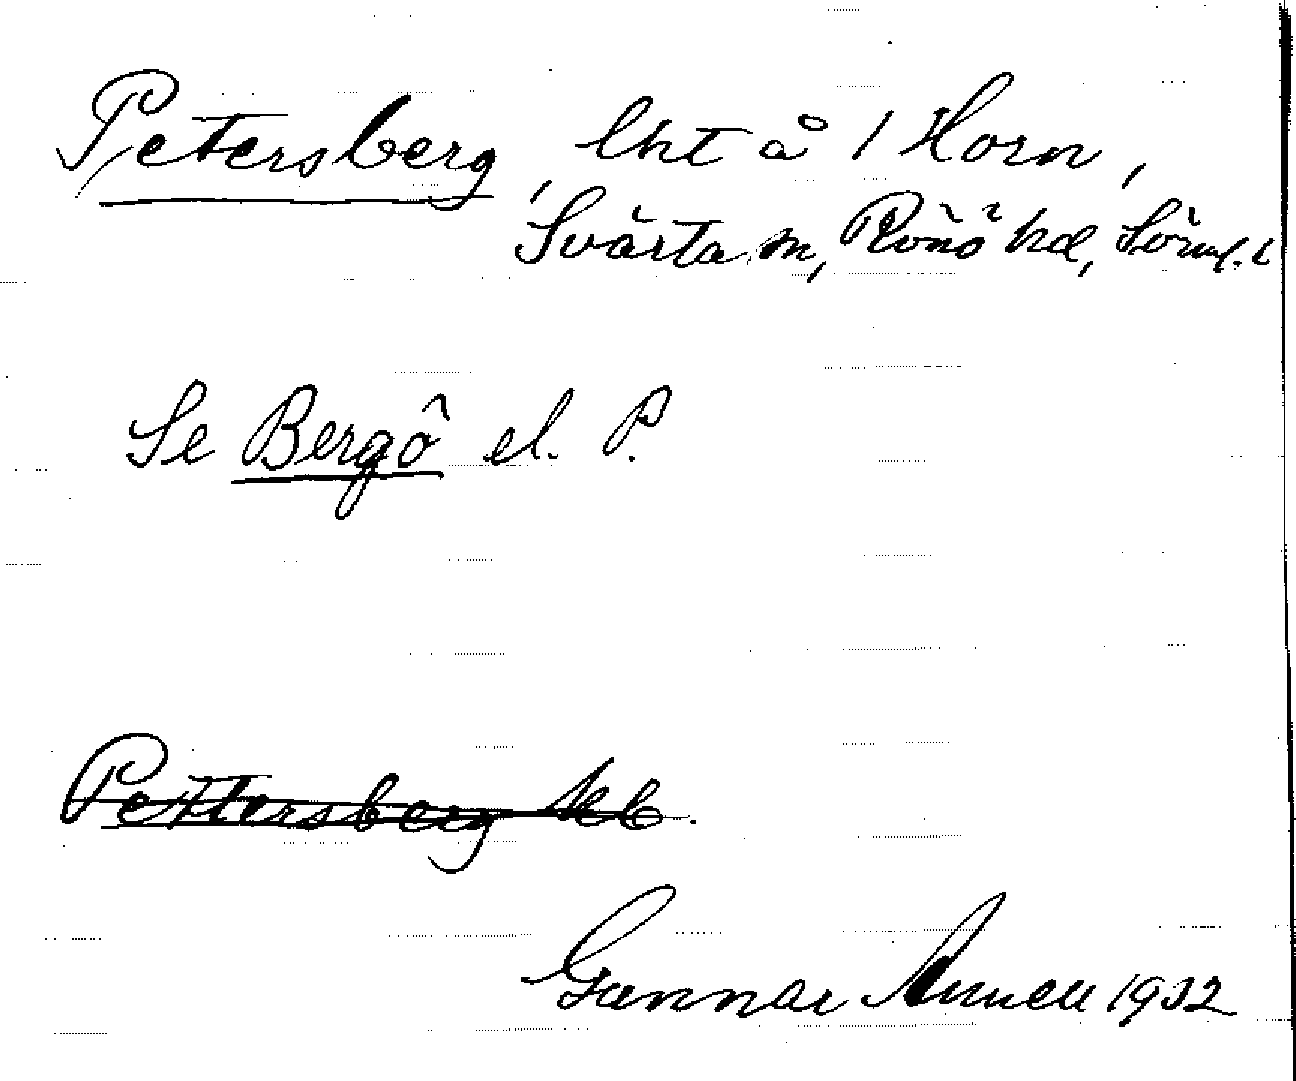 Petersberg, lht å 1 Horn,
Svärta sn, Rönö hd, Sörml. l
Se Bergö el. P.
Pettersberg
Gunnar Annell 1932